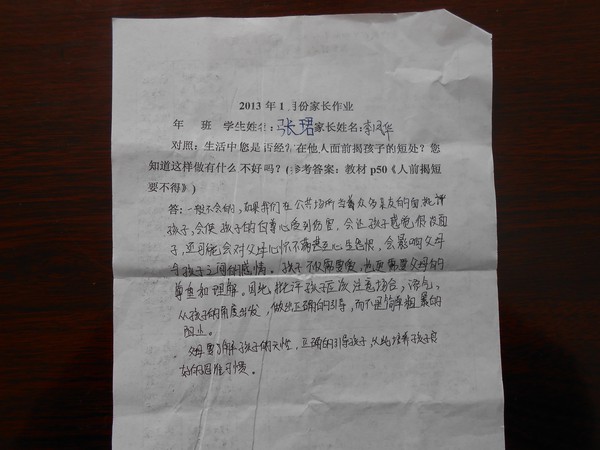 2013 年 1 月份家长作业
年 班 学生姓名：张珺 家长姓名：郭风华
对照：生活中您是否经常在他人面前揭孩子的短处？您
知道这样做有什么不好吗？（参考答案：教材 p50《人前揭短
要不得》）
答：一般不会的，如果我们在公共场所当着众多亲友的面批评
孩子，会使孩子的自尊心受到伤害，会让孩子感觉很没面
子，还可能会对父母心怀不满甚至心生怨恨，会影响父母
与孩子之间的感情。孩子不仅需要爱，也更需要父母的
尊重和理解。因此批评孩子应该注意场合，语气，
从孩子的角度出发，做出正确的引导，而不是简单粗暴的
阻止。
父母要了解孩子的天性，正确的引导孩子，从此培养孩子良
好的思维习惯。